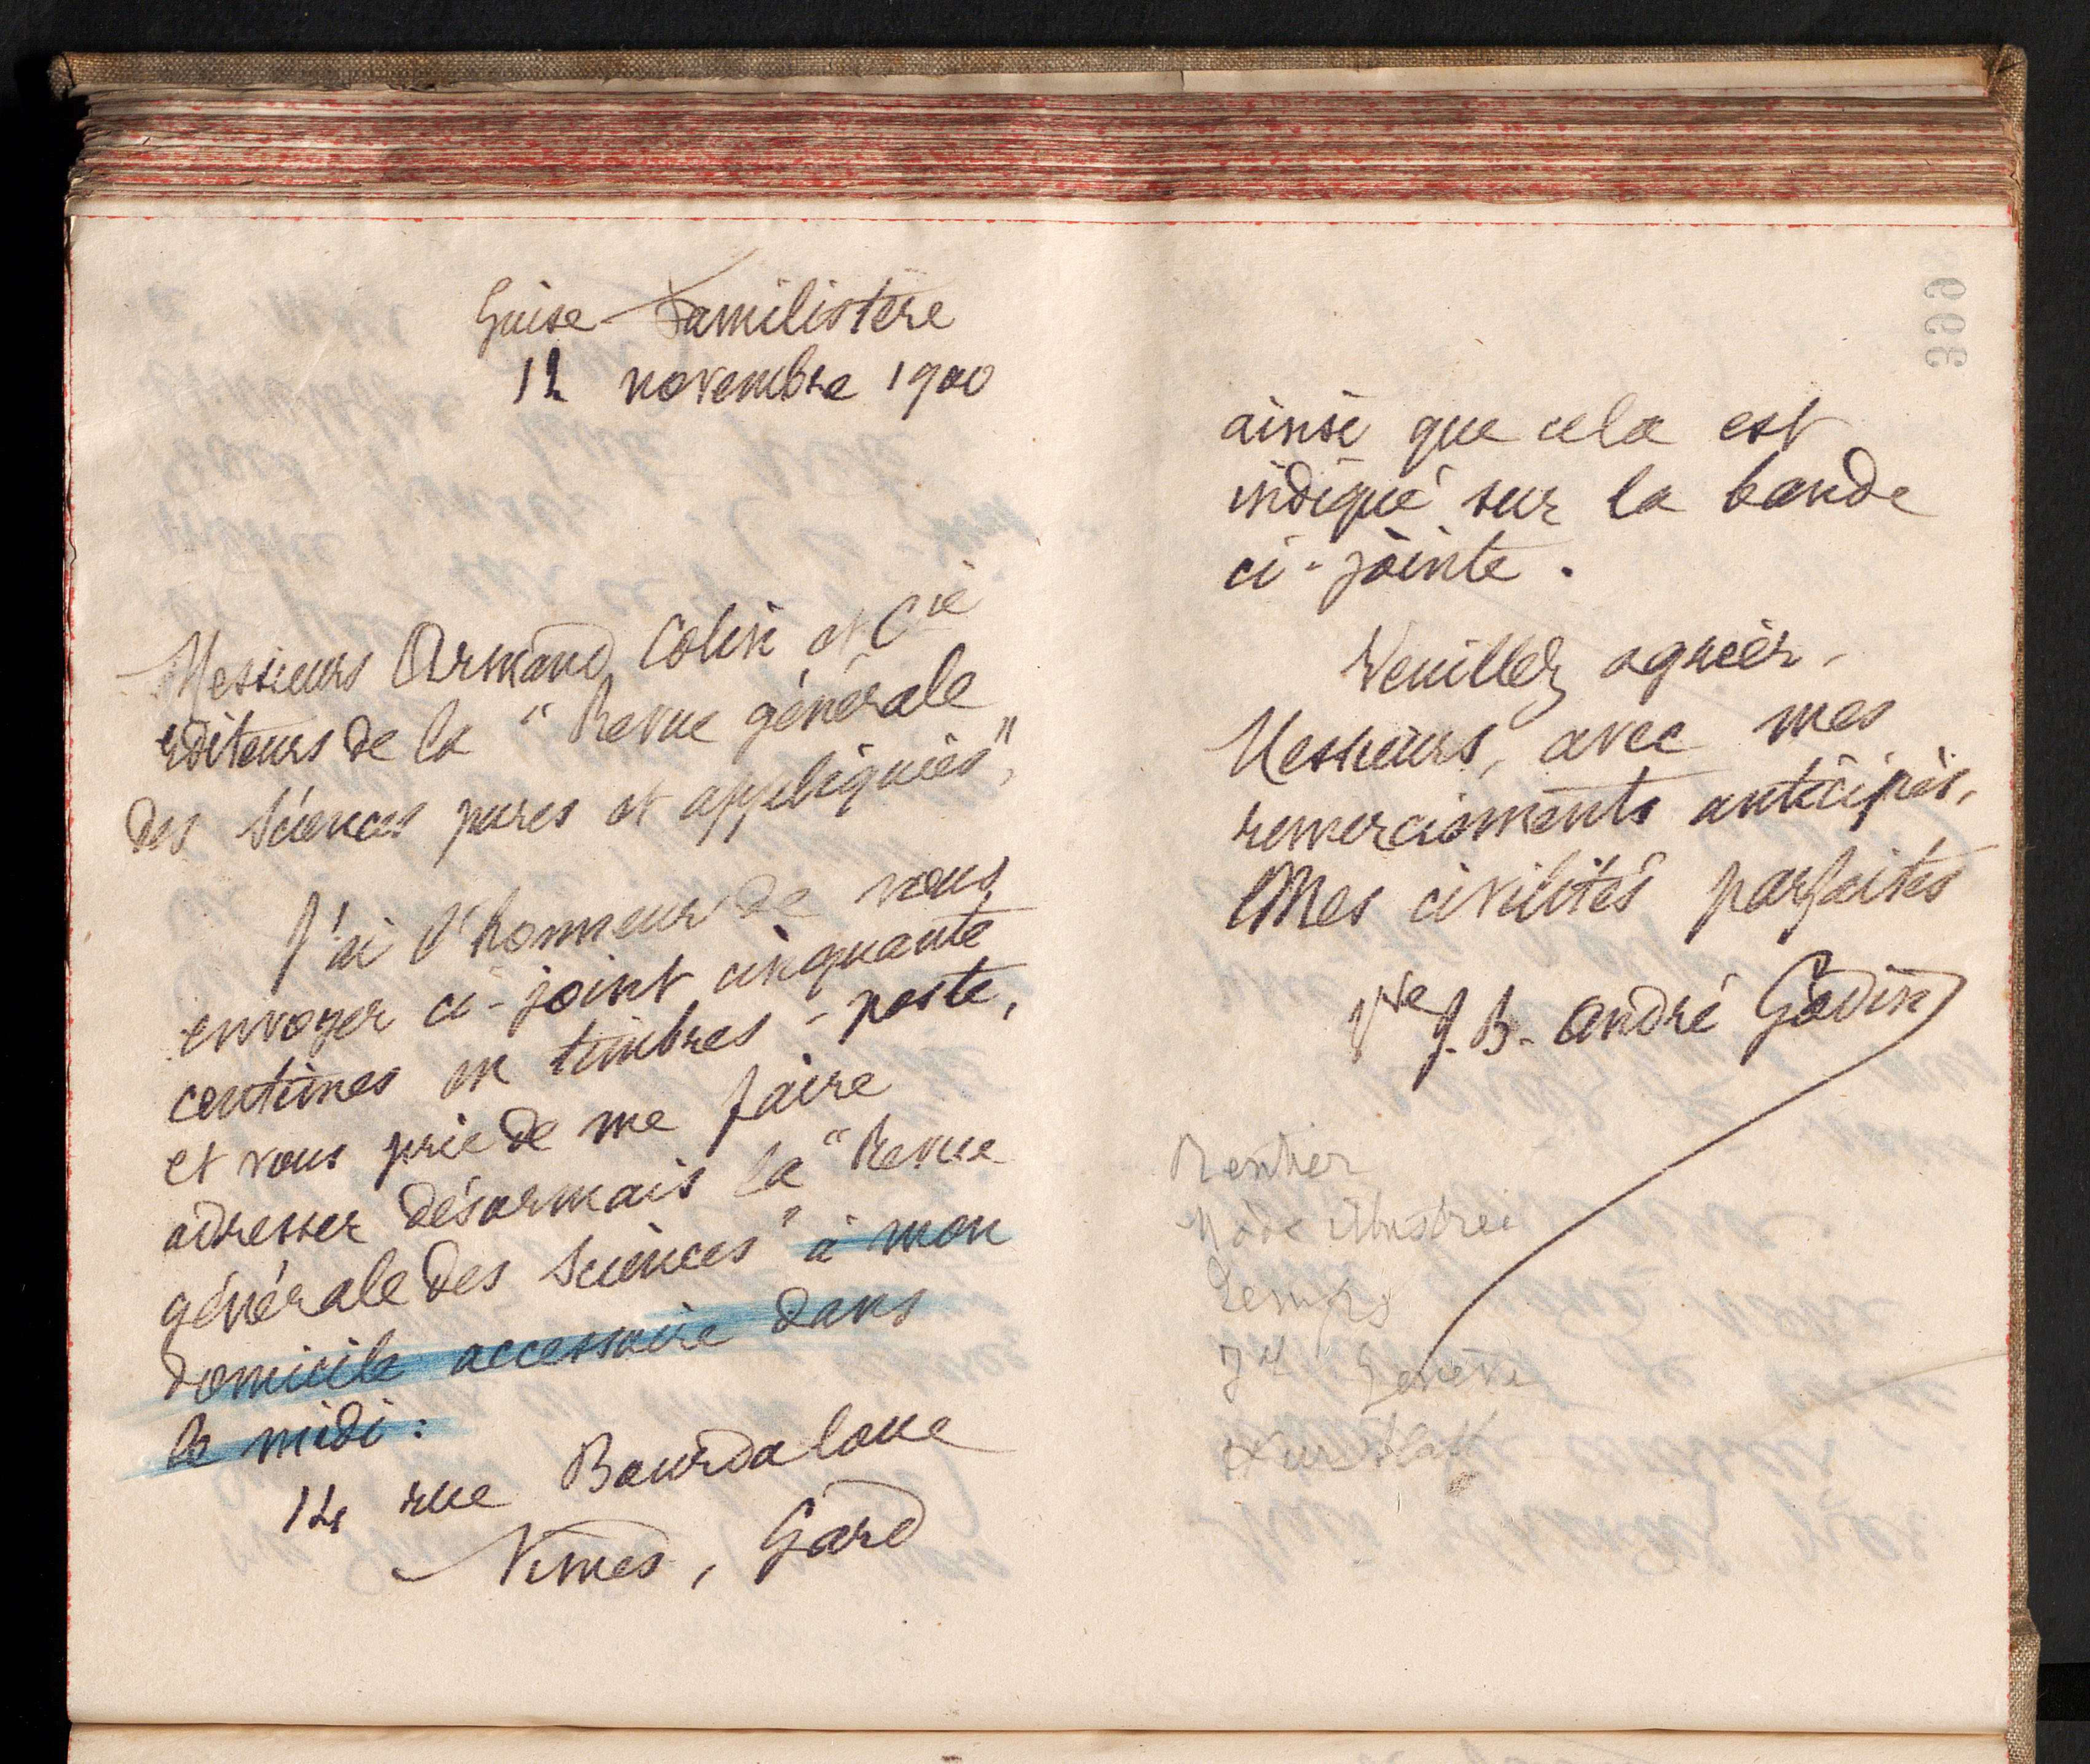 Guise-Familistère
12 novembre 1900
Messieurs Armand Colin et Cie
éditeurs de la "Revue générale
des Sciences pures et appliquées",
J'ai l'honneur de vous
envoyer ci-joint cinquante
centimes en timbres-poste,
et vous prie de me faire
adresser désormais la "Revue
générale des Sciences" à mon
domicile accessoire dans
le midi:
14 rue Bourdaloue
Nimes, Gard
399
ainsi que cela est
indiqué sur la bande
ci-jointe.
Veuillez agréer,
Messieurs, avec mes
remerciements anticipés,
Mes civilités parfaites
Vve J. B. André Godin
Rentier
Mode illustrée
Temps
Jl Genève